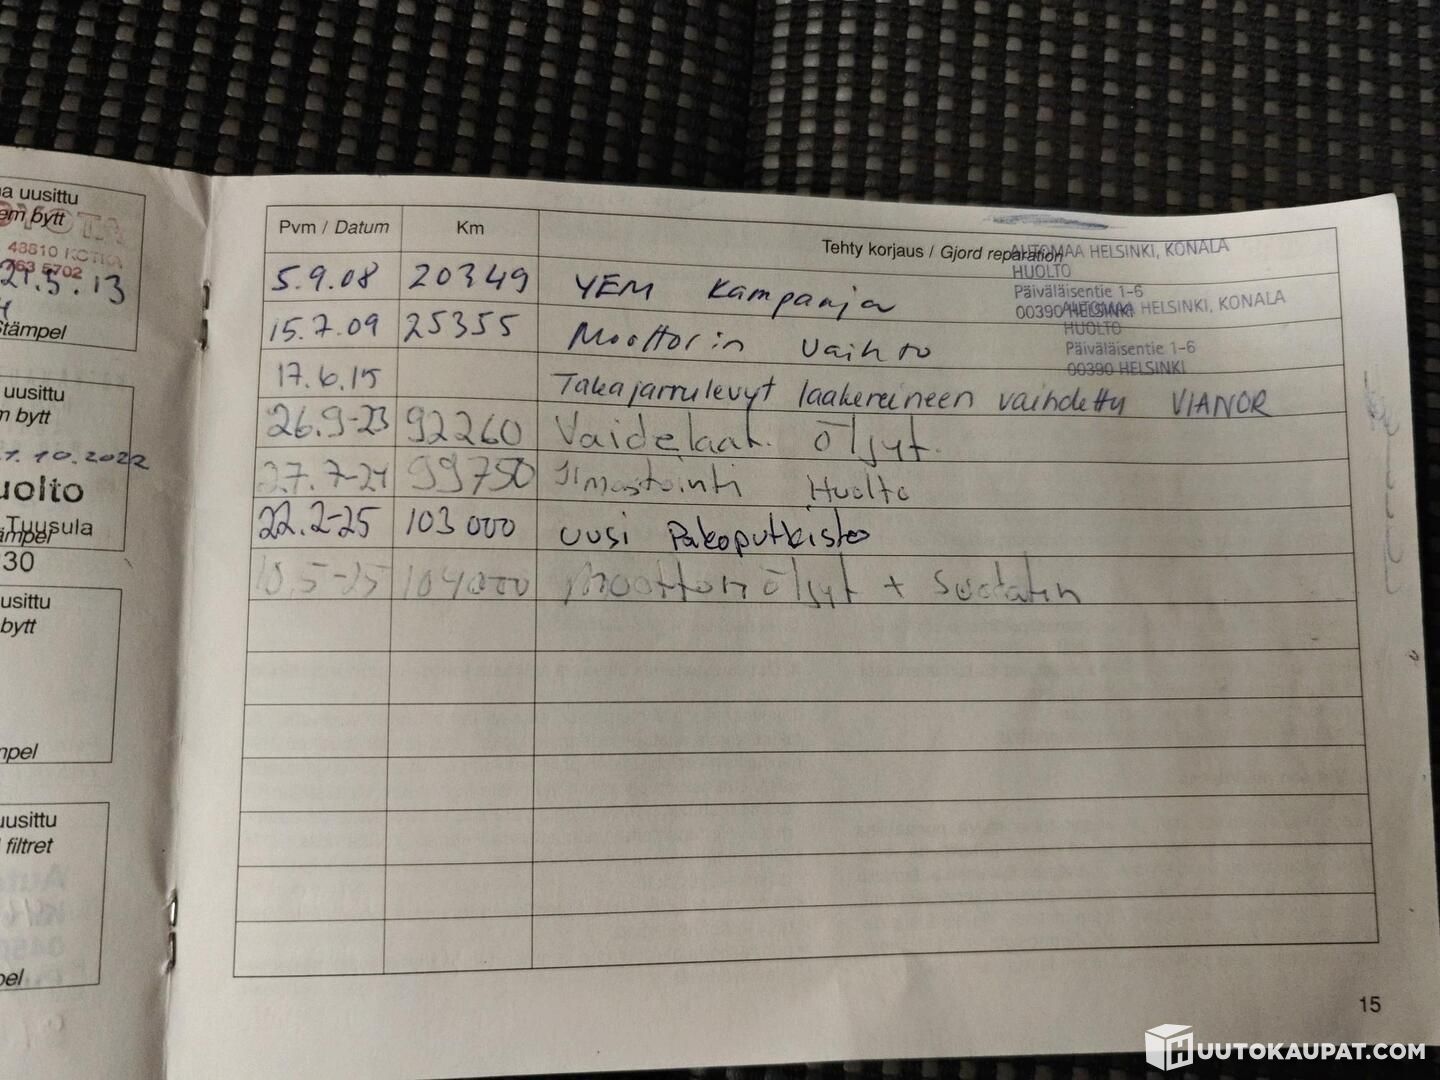 a uusittu
em bytt
TOYOTA
48810 KOTKA
763 5702
21.5.13
Stämpel
uusittu
m bytt
1.10.2022
uolto
Tuusula
ämpel
930
usittu
bytt
mpel
uusittu
l filtret
pel
Pvm / Datum Km Tehty korjaus / Gjord reparation
AUTOMAA HELSINKI, KONALA
HUOLTO
Päiväläisentie 1-6
00390 HELSINKI
5.9.08 20349 YEM Kampanja
AUTOMAA HELSINKI, KONALA
HUOLTO
Päiväläisentie 1-6
00390 HELSINKI
15.7.09 25355 Moottorin vaihto
17.6.15 Takajarrulevyt laakereineen vaihdettu VIANOR
26.9-23 92260 Vaidelaat. öljyt.
27.7-24 99750 Ilmastointi Huolto
22.2-25 103000 uusi Pakoputkisto
10.5-25 104000 Moottori öljyt + Suodatin
15
HUUTOKAUPAT.COM